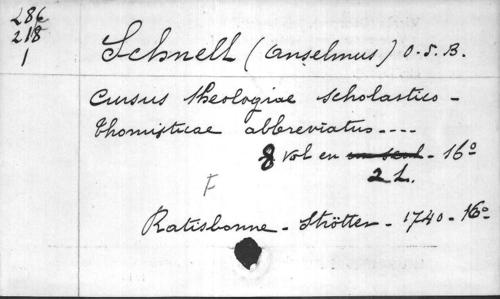 286
218
1
Schnell (Anselmus) O.S.B.
Cursus theologiae scholastico-
thomisticae abbreviatus....
8 vol en un seul - 16º
2 t.
F
Ratisbonne - Strötter - 1740 - 16º